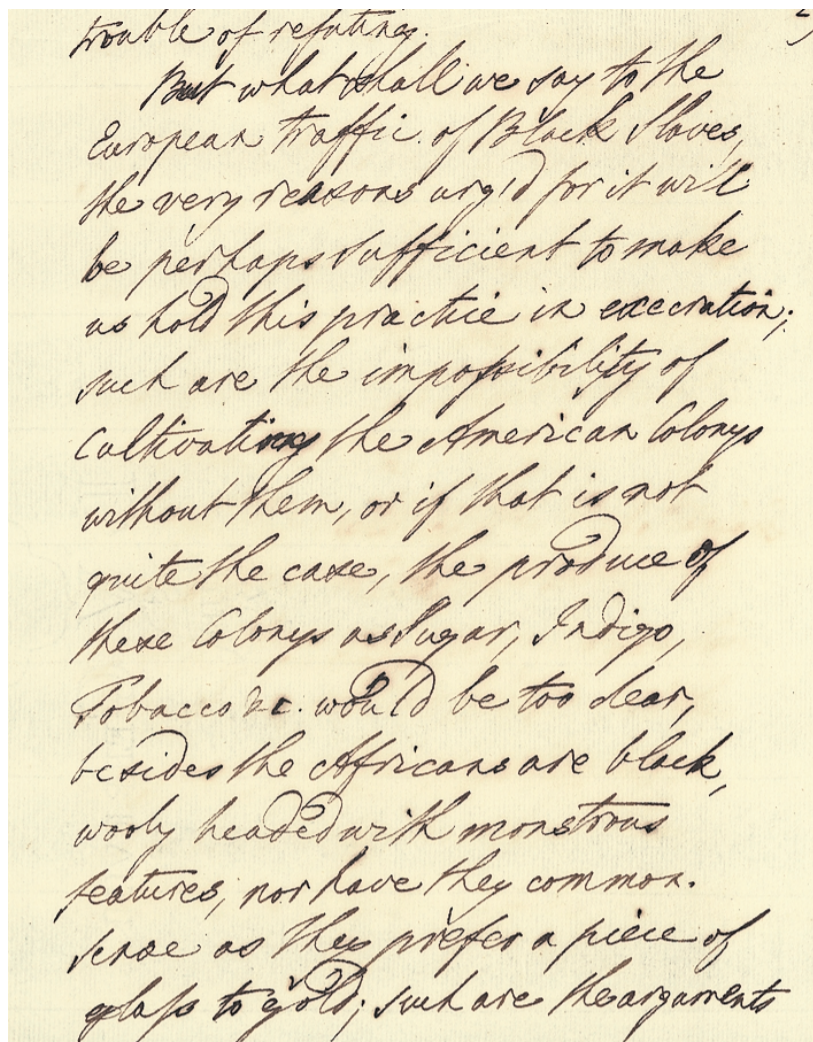 trouble of refuting.
But what shall we say to the
European traffic of Black Slaves,
the very reasons urg'd for it will
be perhaps sufficient to make
us hold this practice in execration;
such are the impossibility of
Cultivating the American Colonys
without them, or if that is not
quite the case, the produce of
these Colonys as Sugar, Indigo,
Tobacco &c. would be too dear,
besides the Africans are black,
wooly headed with monstrous
features, nor have they common
sense as they prefer a piece of
glass to gold; such are the arguments